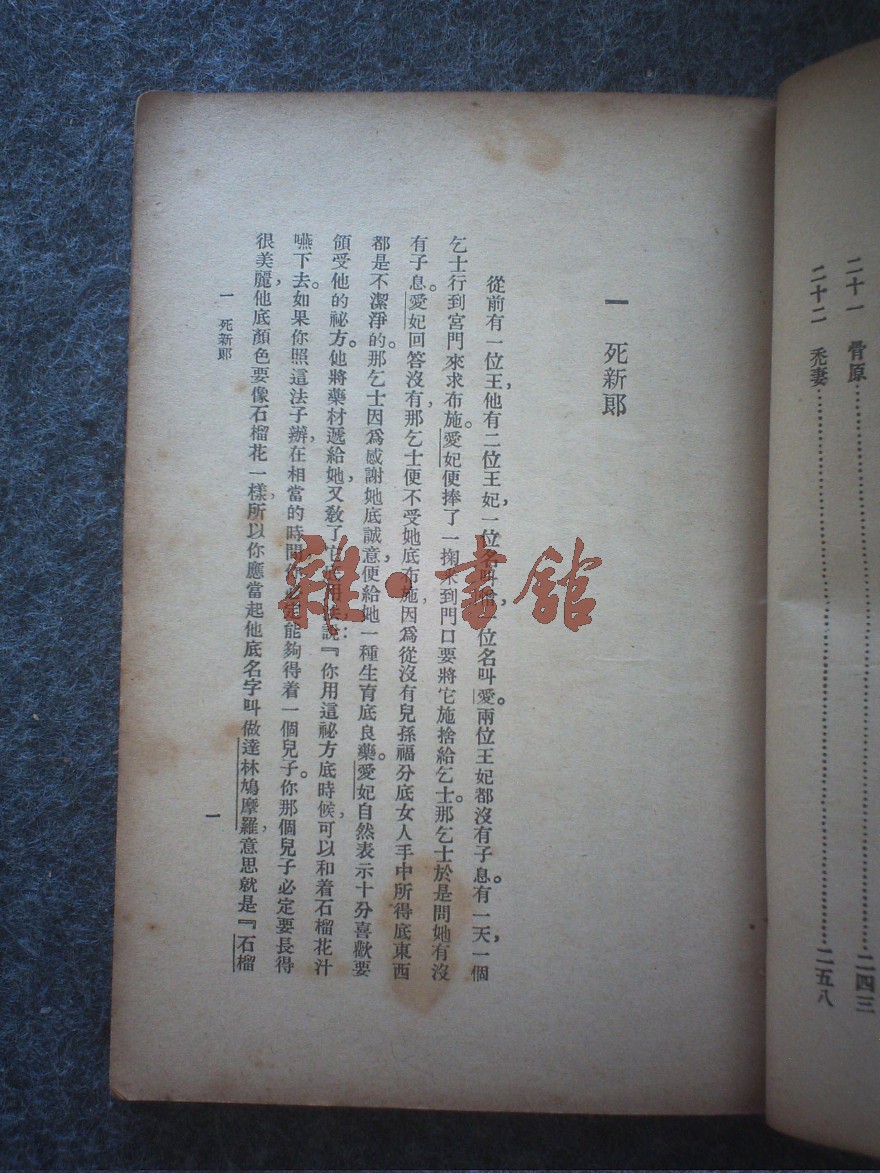 二十一 骨原……………………二四三
二十二 禿妻……………………二五八
一 死新郎
從前有一位王,他有二位王妃,一位名叫,一位名叫愛。兩位王妃都沒有子息。有一天,一個
乞士行到宮門來求布施。愛妃便捧了一掬米到門口要將它施捨給乞士。那乞士於是問她有沒
有子息。愛妃回答沒有,那乞士便不受她底布施,因爲從沒有兒孫福分底女人手中所得底東西
都是不潔淨的。那乞士因爲感謝她底誠意,便給她一種生育底良藥。愛妃自然表示十分喜歡要
領受他的祕方。他將藥材遞給她,又敎了它底用法,說:『你用這祕方底時候,可以和着石榴花汁
嚥下去。如果你照這法子辦,在相當的時間你必定能夠得着一個兒子。你那個兒子必定要長得
很美麗,他底顏色要像石榴花一樣,所以你應當起他底名字叫做達林鳩摩羅,意思就是『石榴
一 死新郎
一
雜·書館